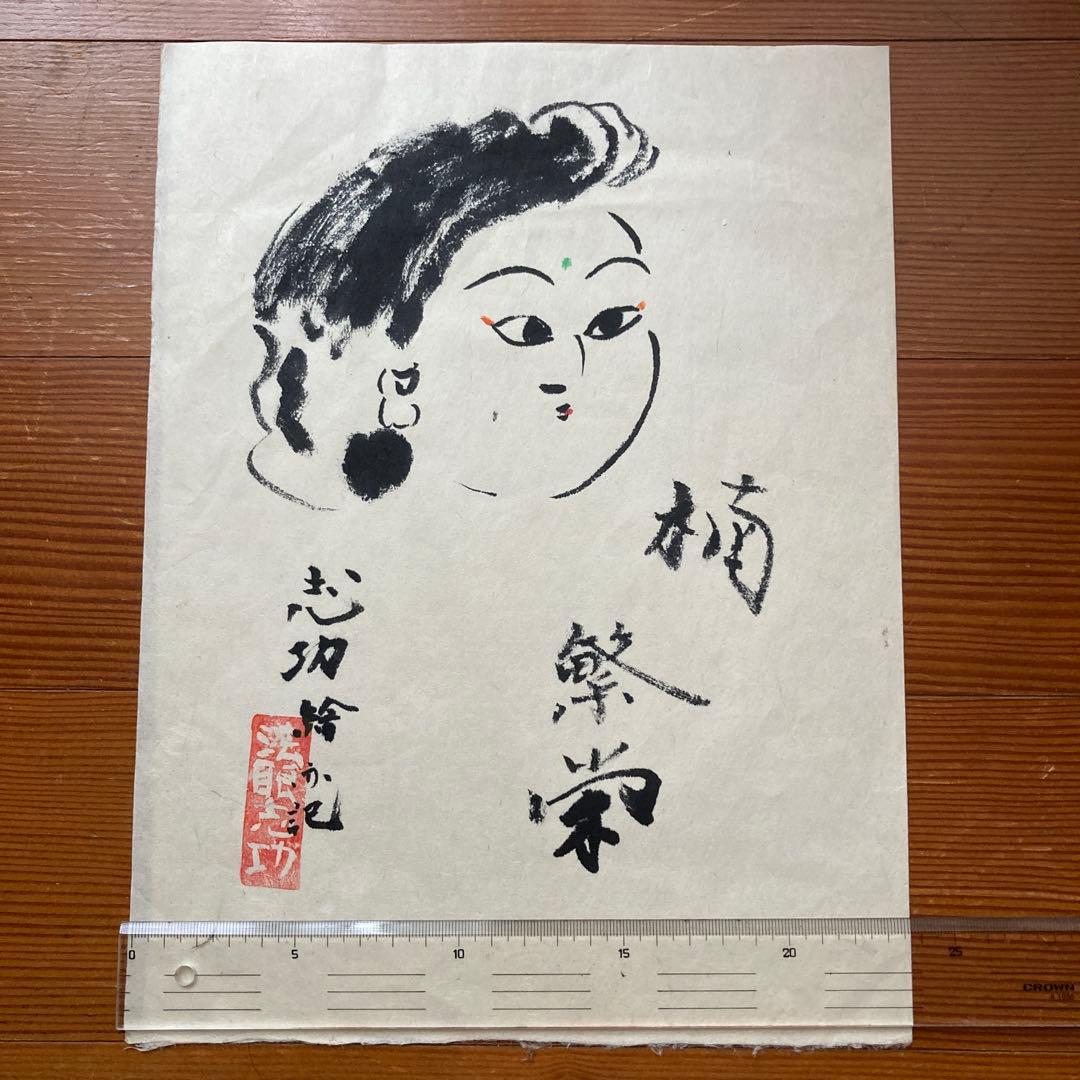 楠
繁
栄
志功繪并記
法眼志功
0 5 10 15 20 25
CROWN